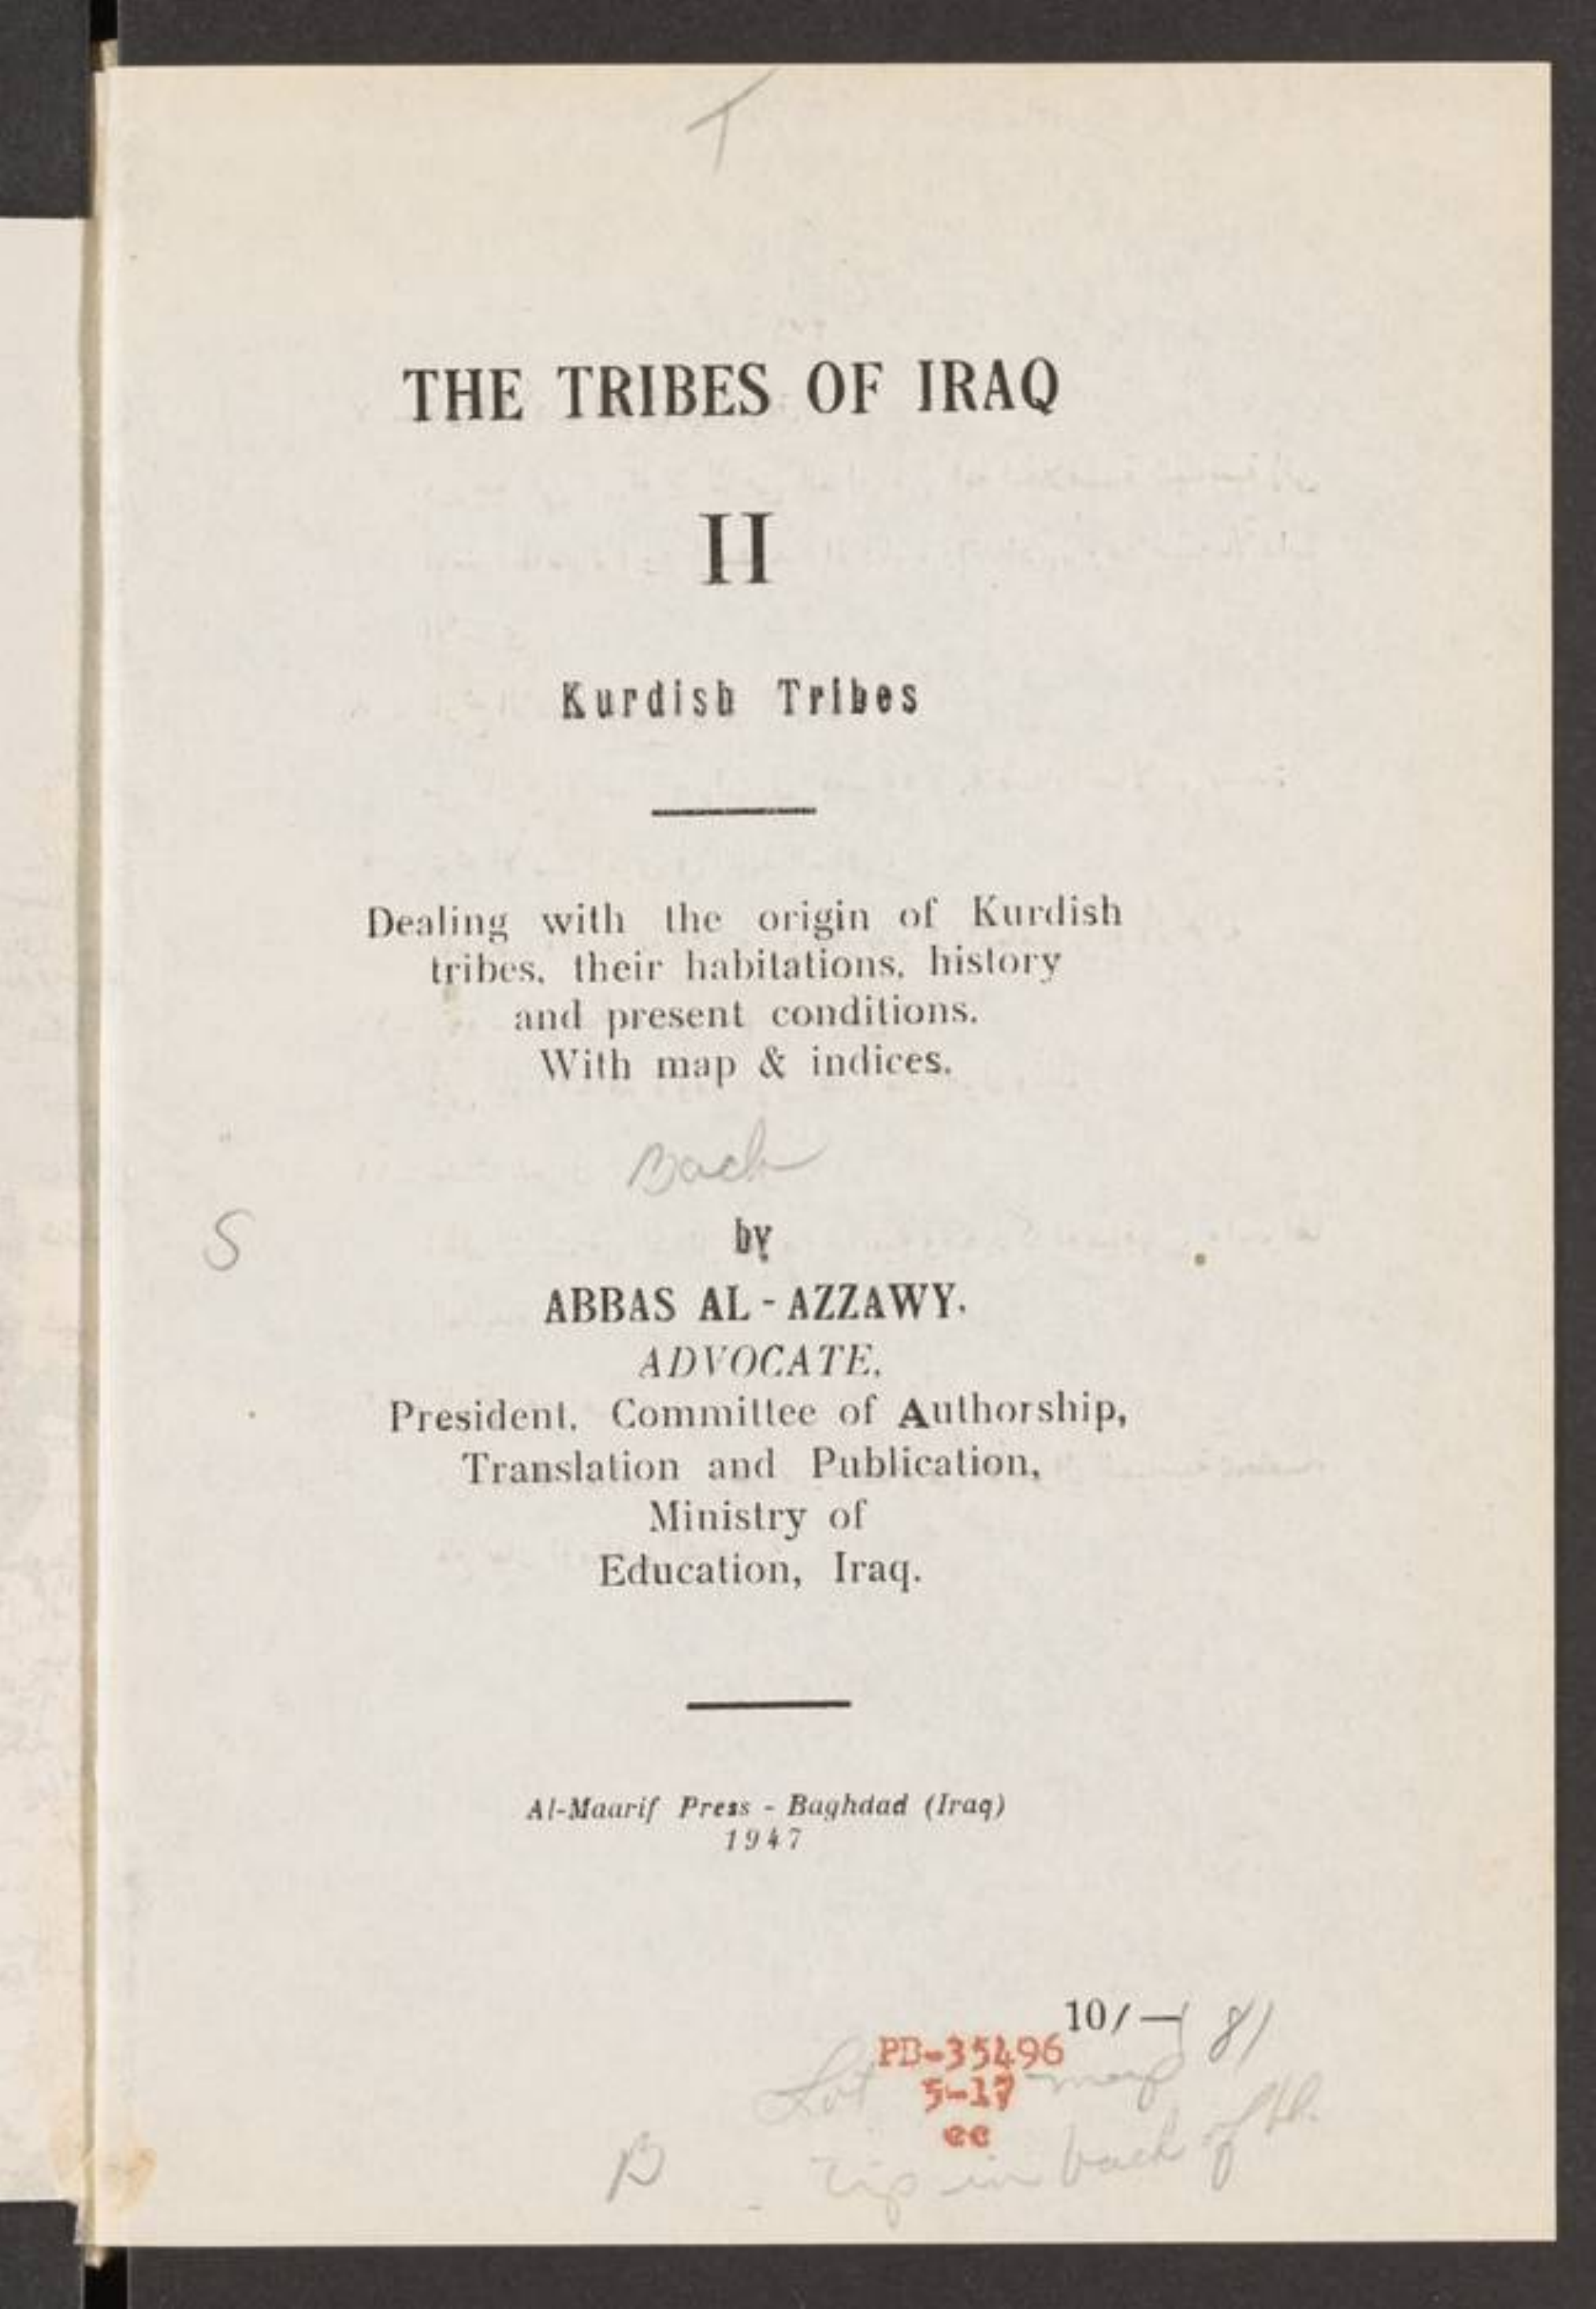 T
THE TRIBES OF IRAQ
II
Kurdish Tribes
Dealing with the origin of Kurdish
tribes, their habitations, history
and present conditions.
With map & indices.
Back
S
by
ABBAS AL - AZZAWY.
ADVOCATE,
President, Committee of Authorship,
Translation and Publication,
Ministry of
Education, Iraq.
Al-Maarif Press - Baghdad (Iraq)
1947
10/— 81
PB-35496
map
5-17
cc
B
in back of